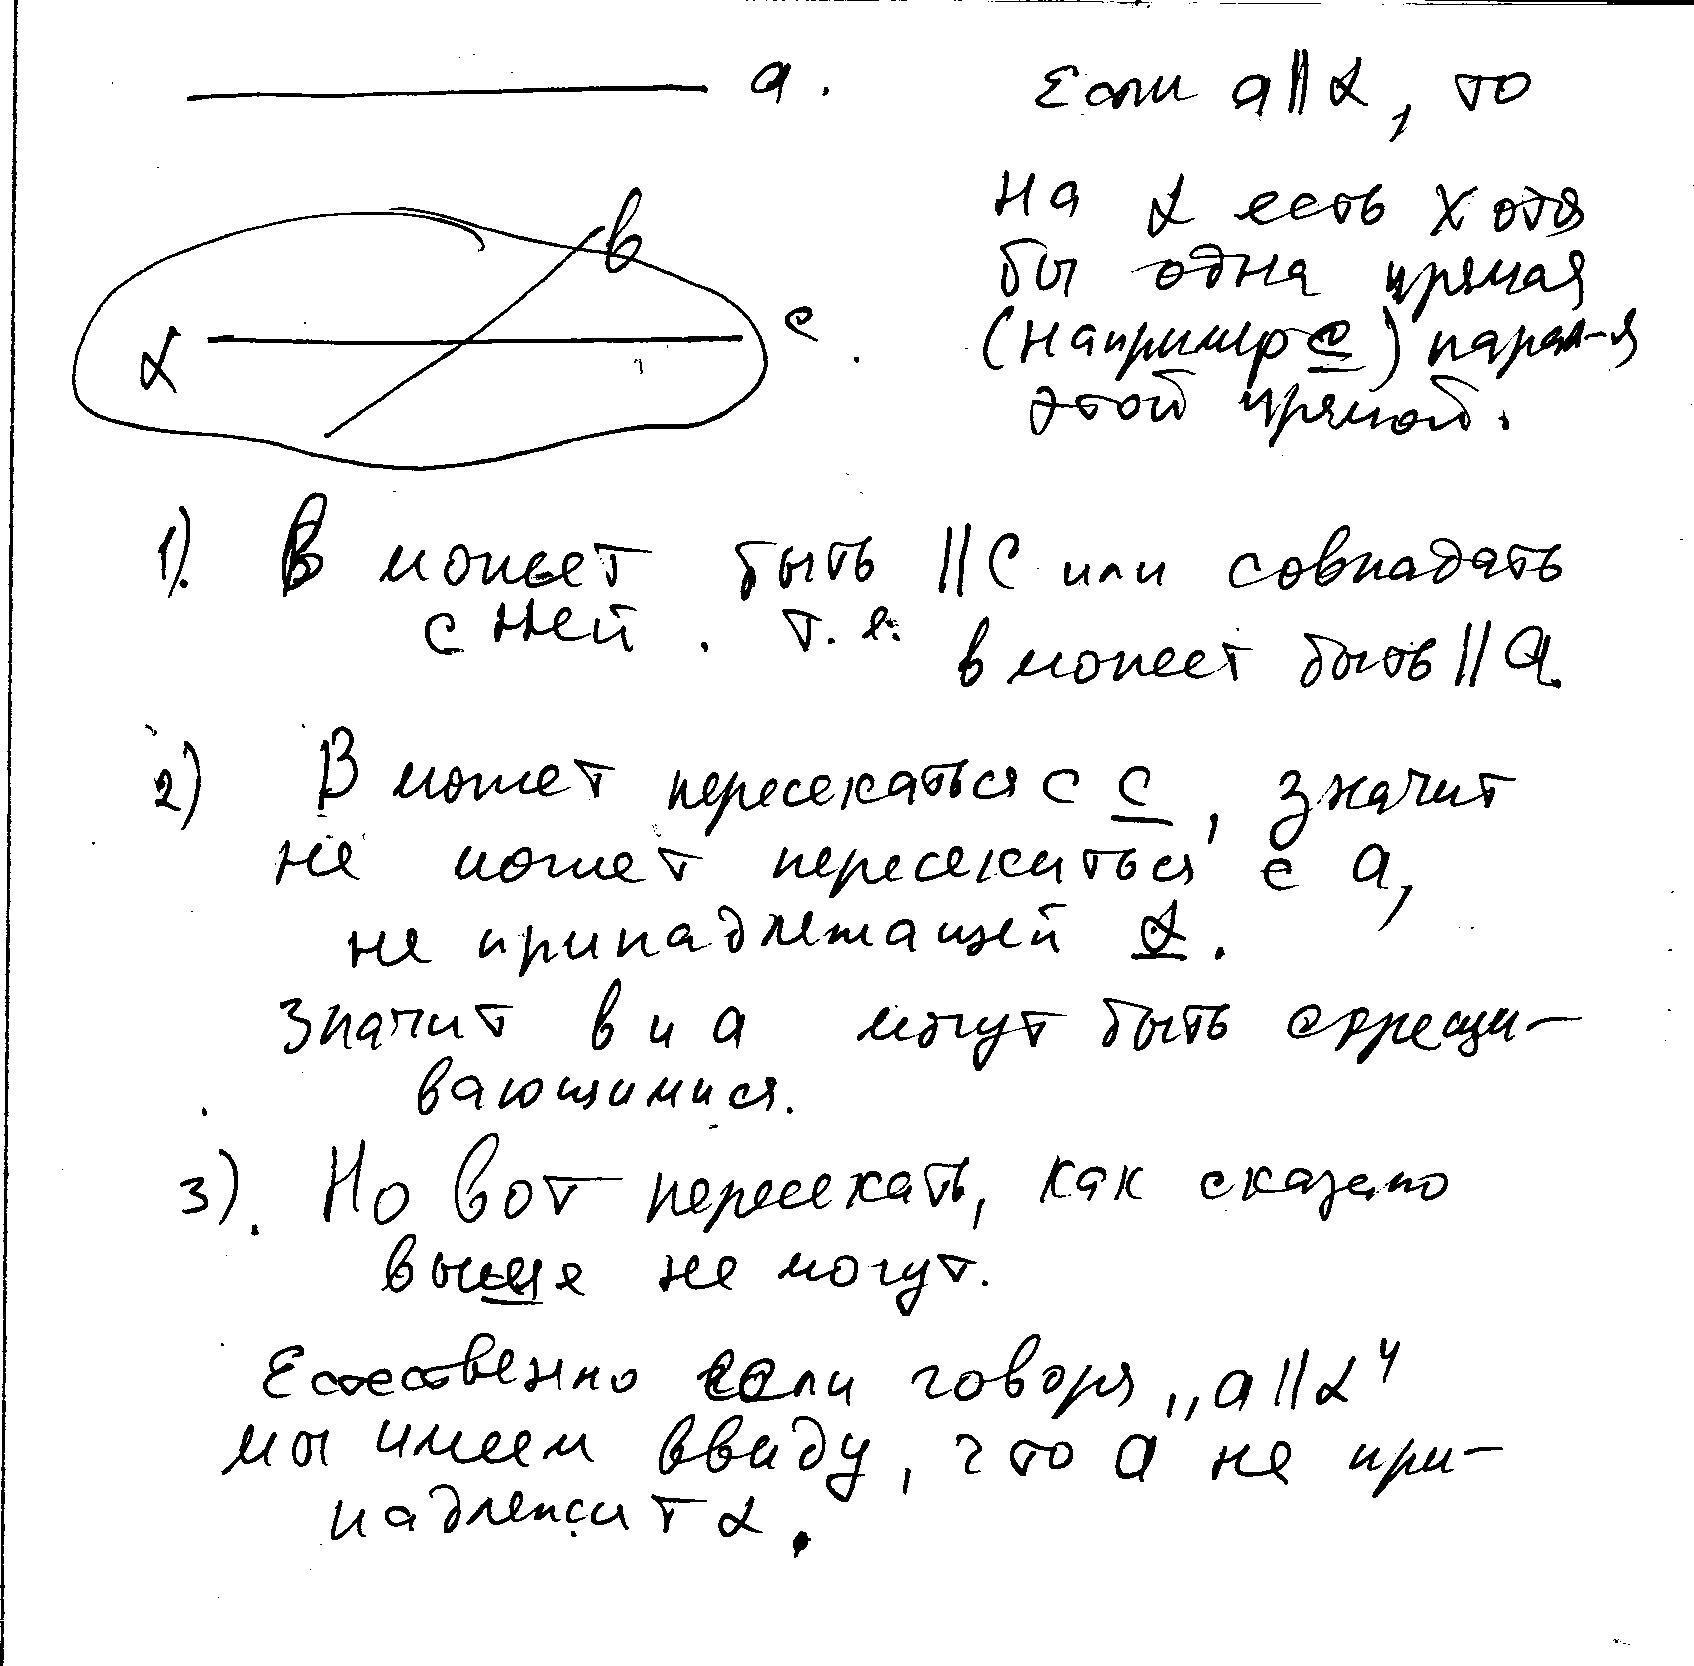 а. Если a∥α, то
на α есть хотя
в
бы одна прямая
с. (например с) парал-я
α
этой прямой.
1). В может быть ∥ С или совпадать
с ней. т.е. в может быть ∥ а.
2) В может пересекаться с с, значит
не может пересекаться с а,
не принадлежащей α.
Значит в и а могут быть скрещи-
вающимися.
3). Но вот пересекать, как сказано
выше не могут.
Естественно если говоря „a∥α"
мы имеем ввиду, что а не при-
надлежит α.